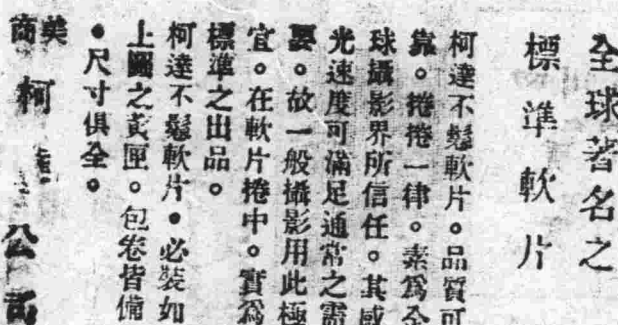 全球著名之
標準軟片
柯達不鬆軟片。品質可
靠。捲捲一律。素爲全
球攝影界所信任。其感
光速度可滿足通常之需
要。故一般攝影用此極
宜。在軟片捲中。實爲
標準之出品。
柯達不鬆軟片。必裝如
上圖之黃匣。包卷皆備
。尺寸俱全。
美商柯達公司